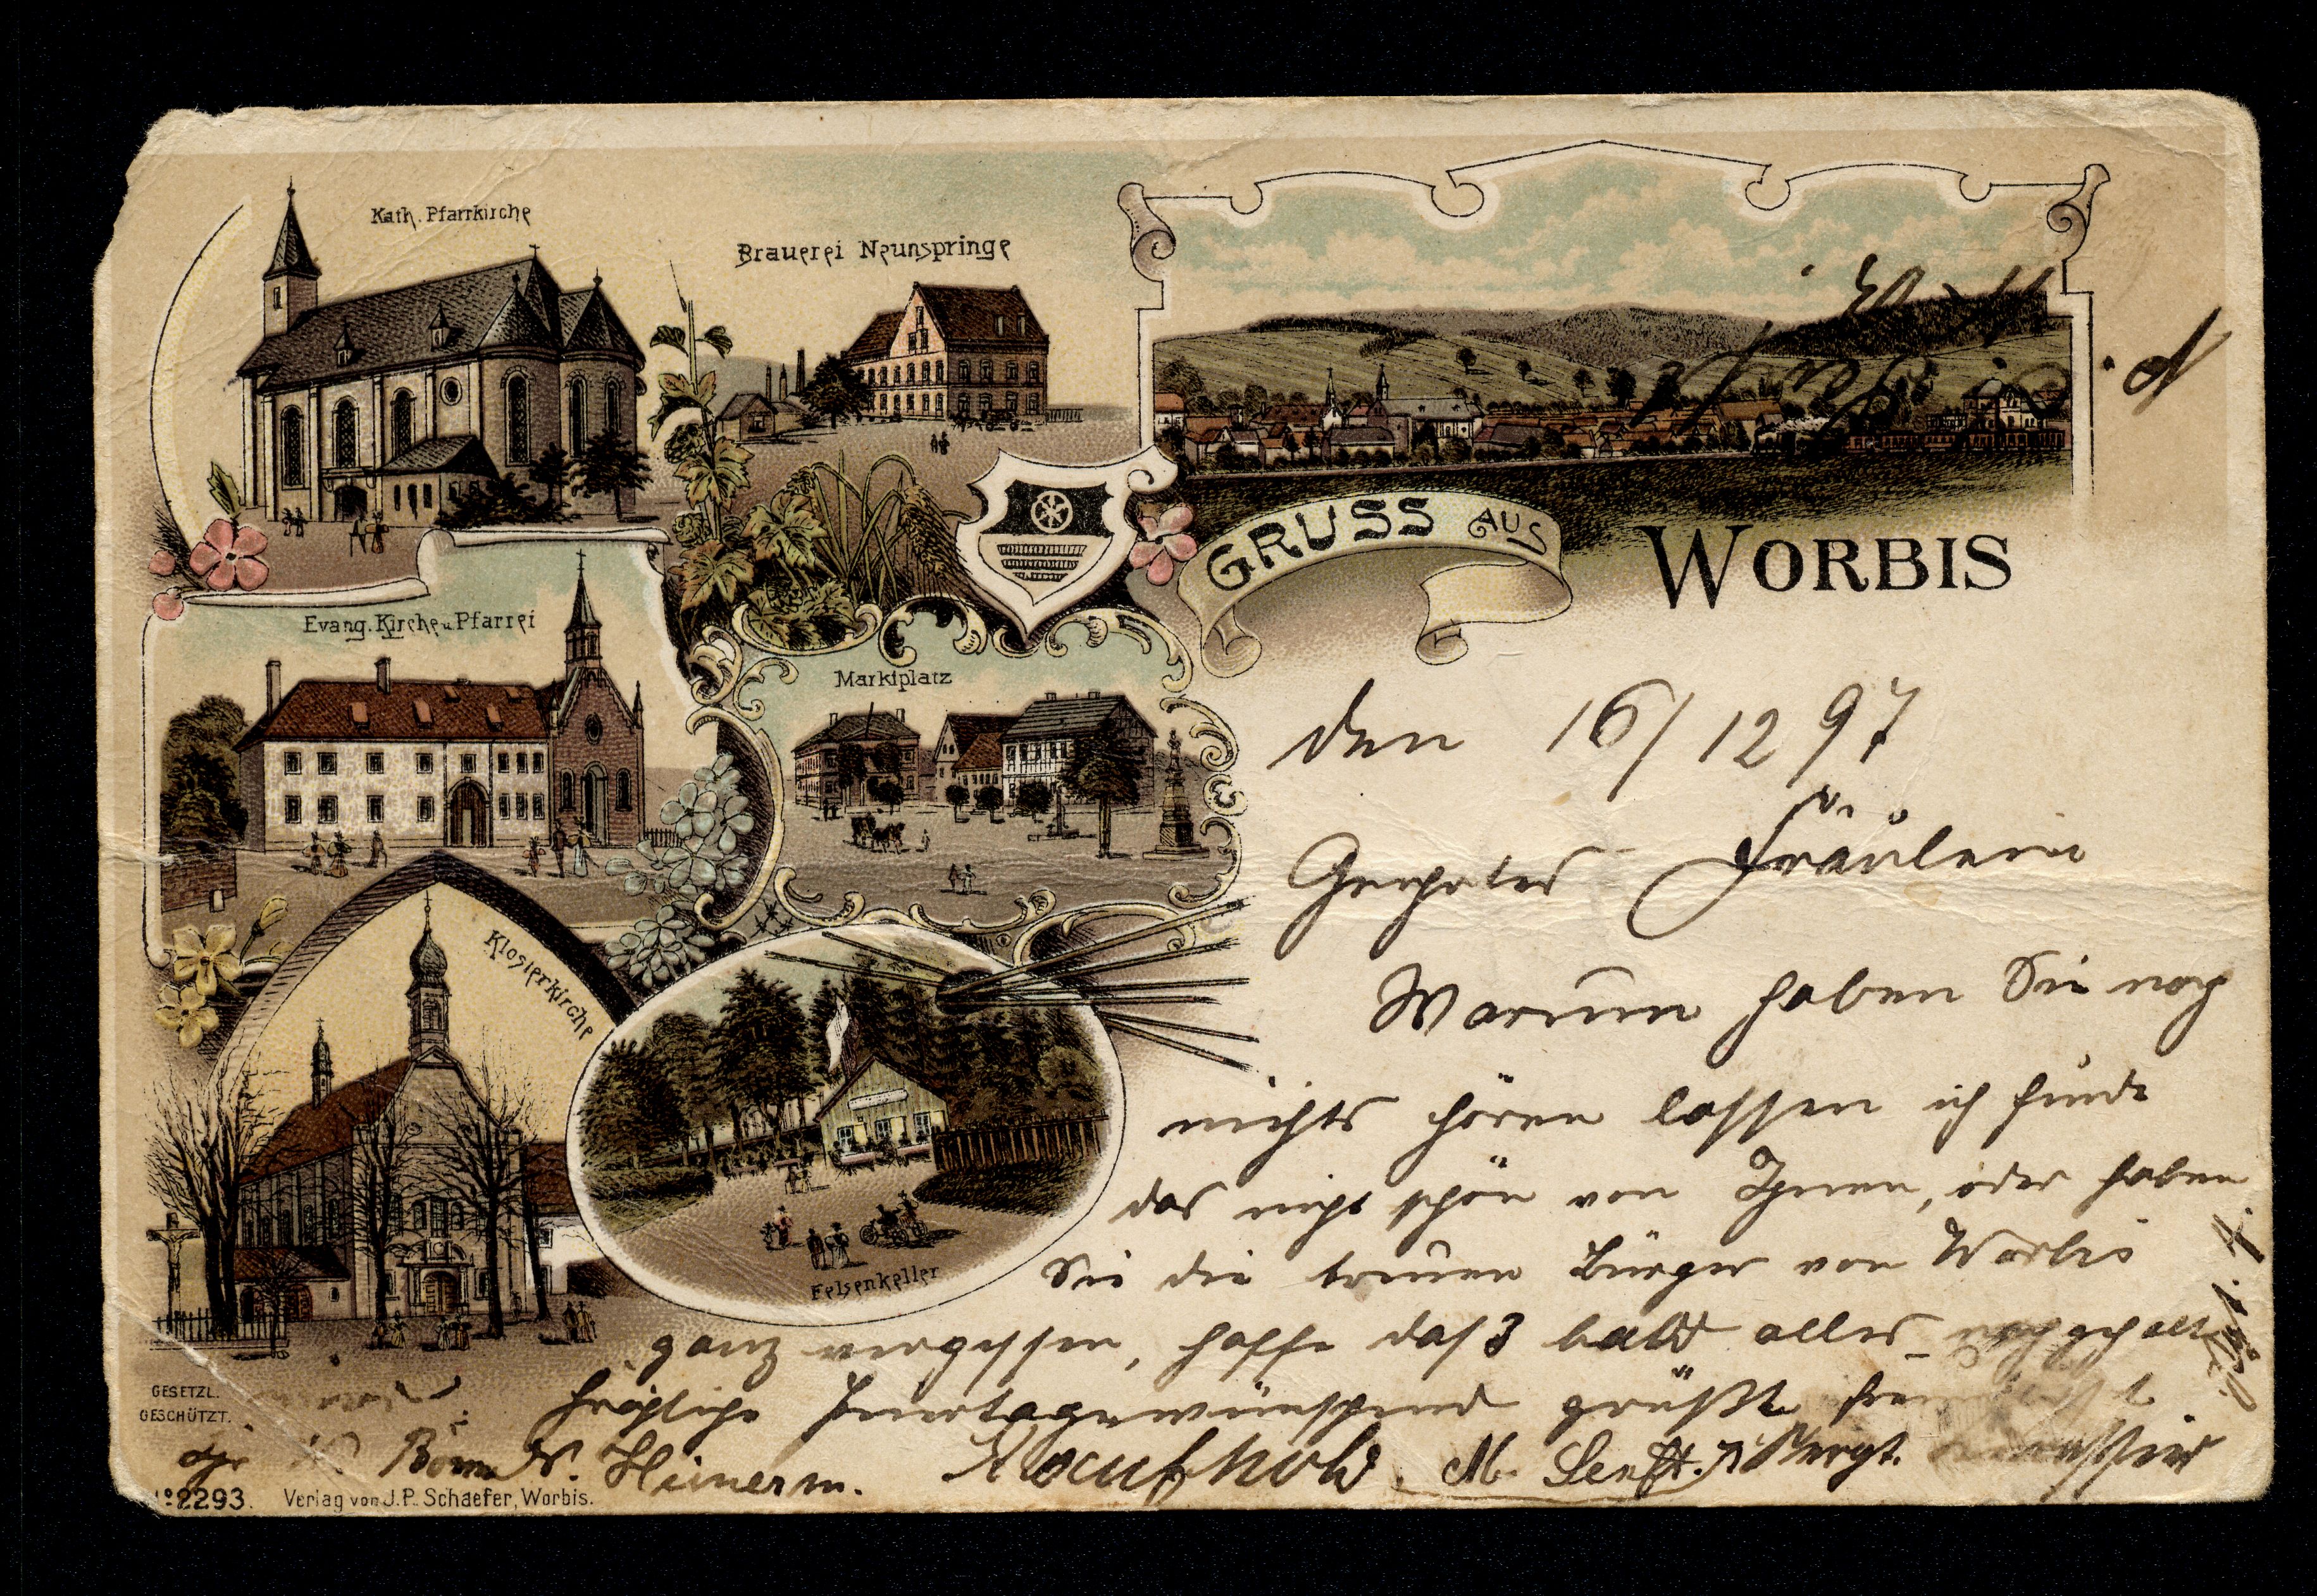 Kath. Pfarrkirche
Brauerei Neunspringe
GRUSS AUS
WORBIS
Evang. Kirche u. Pfarrei
Marktplatz
Klosterkirche
Felsenkeller
den 16/12 97
Geehrtes Fräulein
Warum haben Sie noch
nichts hören lassen ich finde
das nicht schön von Ihnen, oder haben
Sie die treuen Bürger von Worbis
ganz vergessen, hoffe daß bald alles
fröhliche Feiertage wünschend grüßt
Heinerm. M. Senft.
GESETZL.
GESCHÜTZT.
No 2293. Verlag von J. P. Schaefer, Worbis.